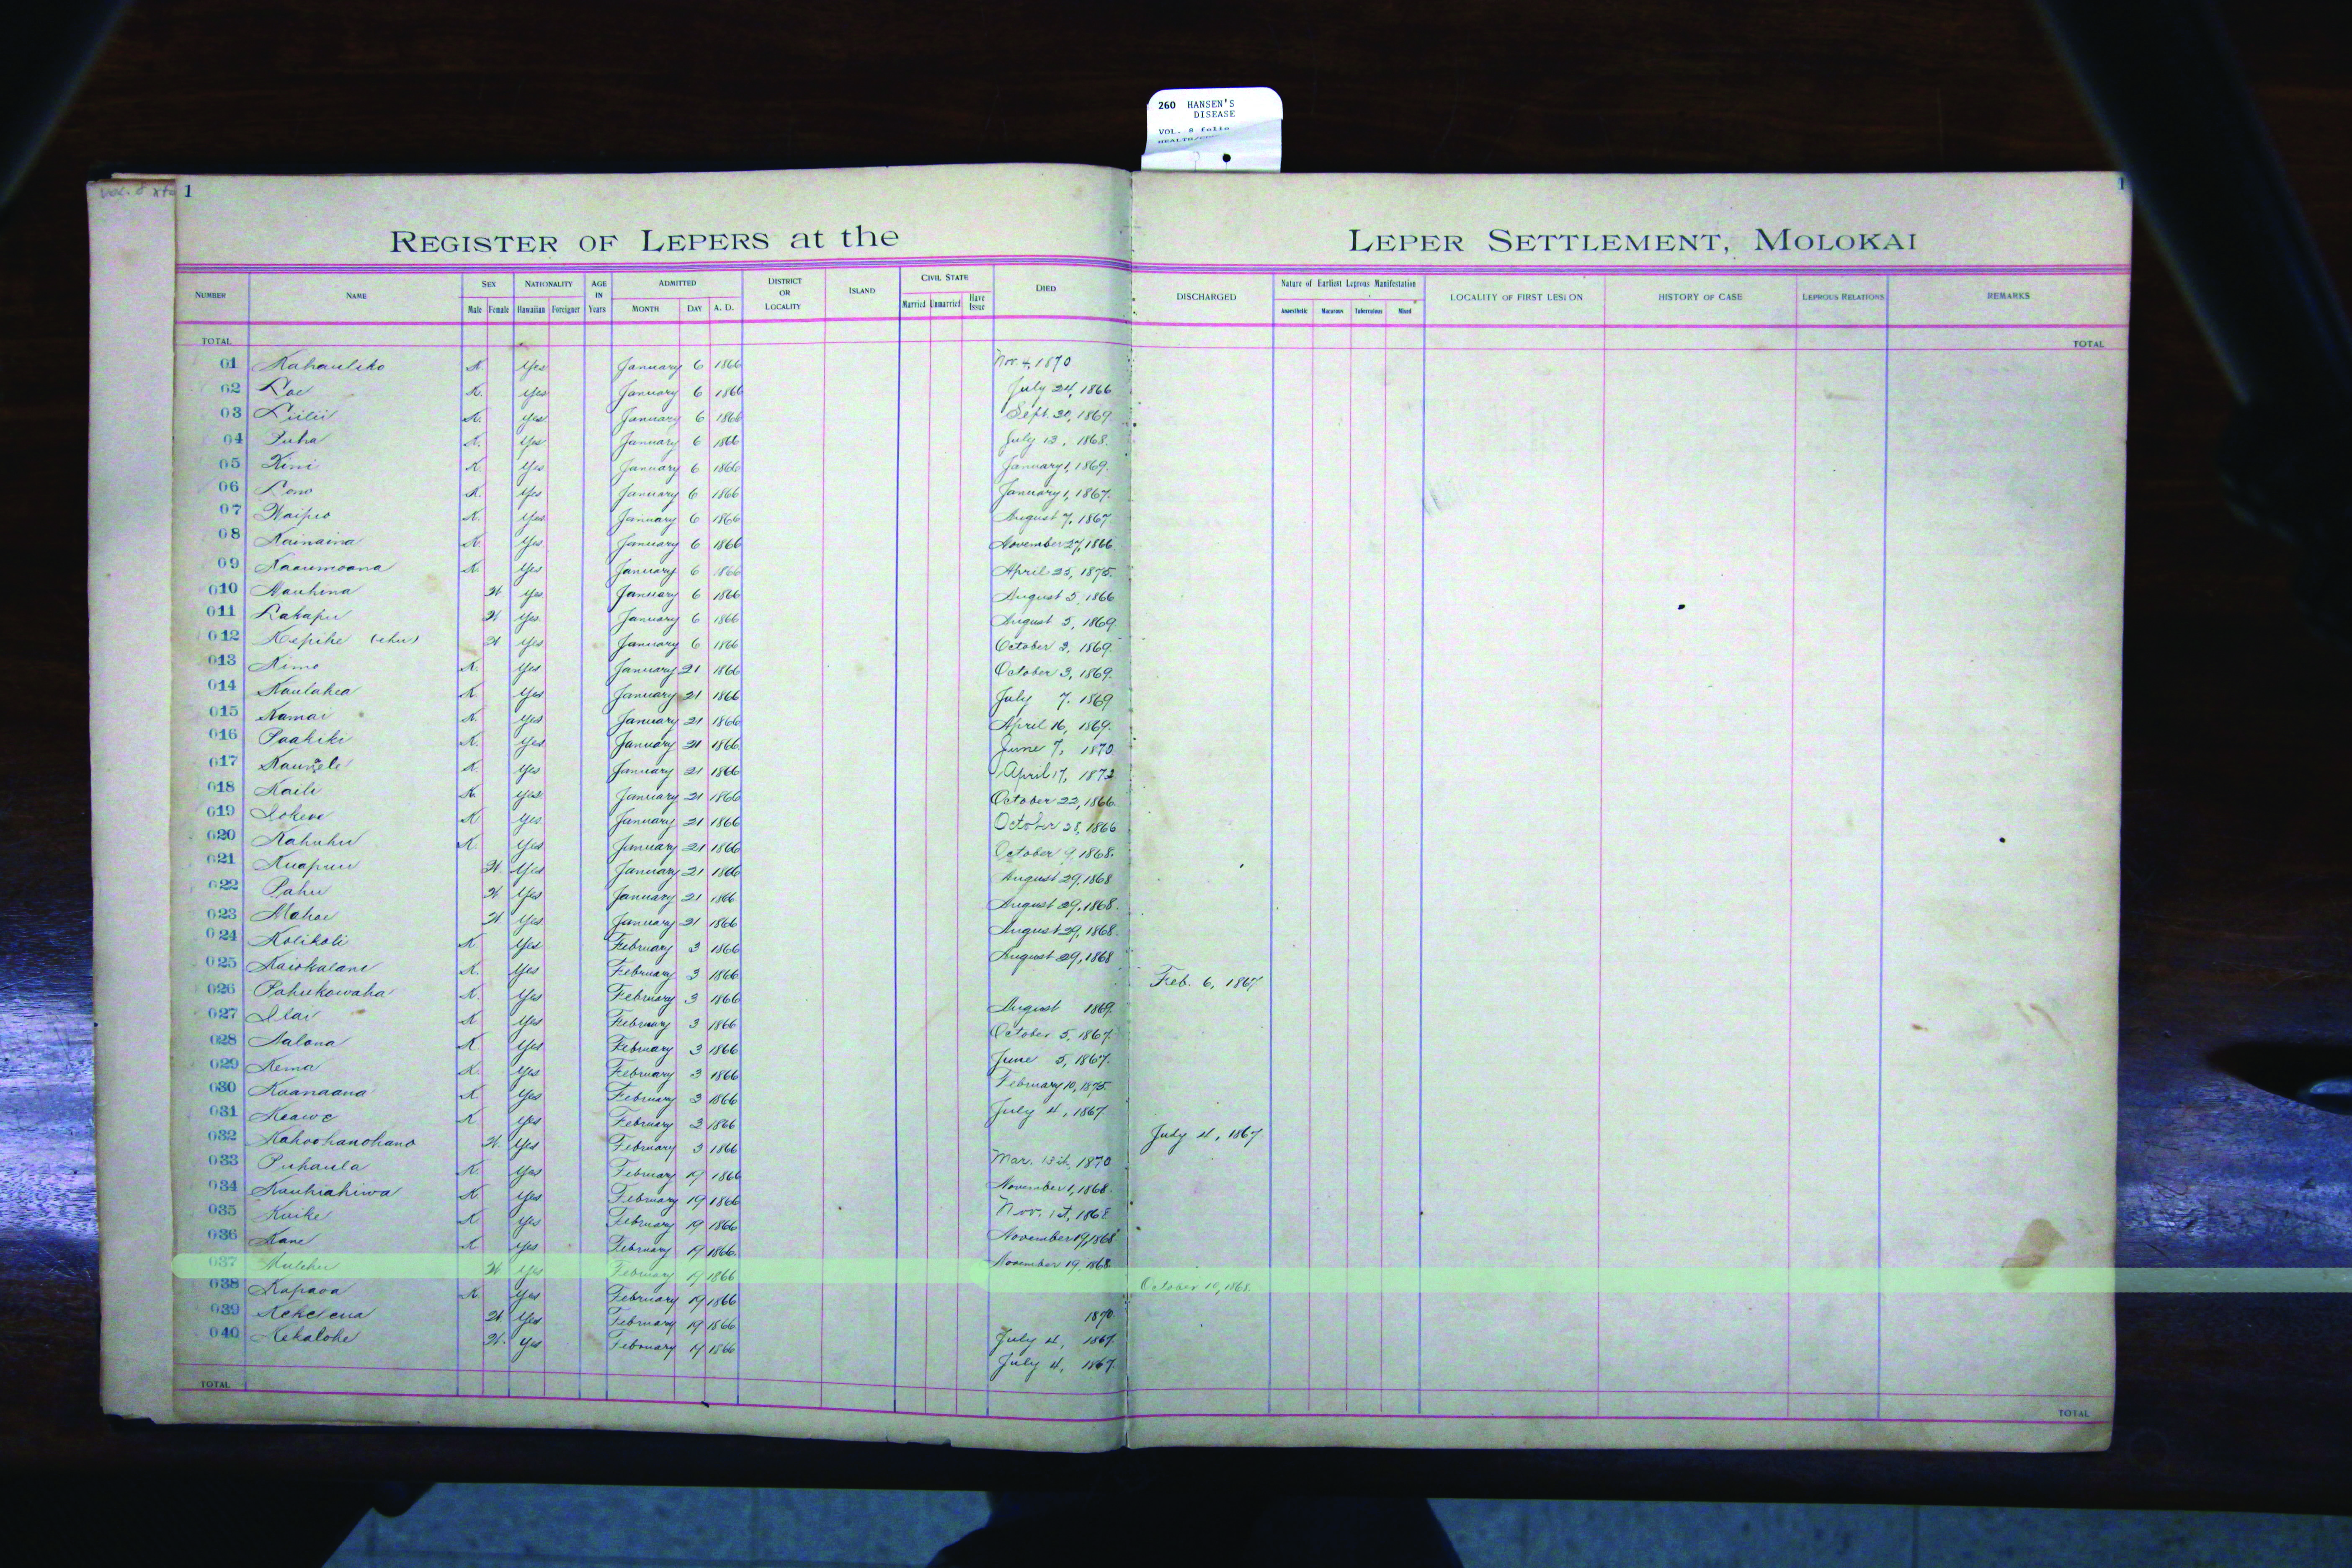 260 HANSEN'S
DISEASE
VOL. 8 folio
1
1
REGISTER OF LEPERS at the LEPER SETTLEMENT, MOLOKAI
NUMBER NAME SEX Male Female NATIONALITY Hawaiian Foreigner AGE IN Years ADMITTED MONTH DAY A. D. DISTRICT OR LOCALITY ISLAND CIVIL STATE Married Unmarried Have Issue DIED DISCHARGED Nature of Earliest Leprous Manifestation Anaesthetic Macurous Tuberculous Mixed LOCALITY OF FIRST LESION HISTORY OF CASE LEPROUS RELATIONS REMARKS
TOTAL TOTAL
01 Kahauliko K. Yes January 6 1866 Nov. 4, 1870
02 Loe K. Yes January 6 1866 July 24, 1866
03 Liilii K. Yes January 6 1866 Sept. 20, 1869.
04 Puha K. Yes January 6 1866 July 13, 1868.
05 Kini K. Yes January 6 1866 January 1, 1869.
06 Lono K. Yes January 6 1866 January 1, 1867.
07 Waipio K. Yes January 6 1866 August 7, 1867
08 Nainaina K. Yes January 6 1866 November 27, 1866
09 Kaaumoana K. Yes January 6 1866 April 25, 1875.
010 Mauhina W Yes January 6 1866 August 5, 1866
011 Lakapu W Yes January 6 1866 August 5, 1869
012 Kepihe (ehu) W Yes January 6 1866 October 3, 1869.
013 Kimo K. Yes January 21 1866 October 3, 1869.
014 Kaulahea K Yes January 21 1866 July 7. 1869
015 Kamai K. Yes January 21 1866 April 16, 1869.
016 Paakiki K. Yes January 21 1866 June 7, 1870
017 K. Yes January 21 1866 April 17, 1872
018 Kaili K. Yes January 21 1866 October 22, 1866
019 Iokewe K Yes January 21 1866 October 28, 1866
020 Kahuhu K. Yes January 21 1866 October 9, 1868.
021 Kuapuu W. Yes January 21 1866 August 29, 1868
022 Pahu W Yes January 21 1866 August 29, 1868.
023 Mahoe W Yes January 21 1866 August 29, 1868.
024 Kolikoli K Yes February 3 1866 August 29, 1868
025 Kaiokalani K. Yes February 3 1866 Feb. 6, 1867
026 Pahukowaha K. Yes February 3 1866 August 1869.
027 Ilai K Yes February 3 1866 October 5, 1867
028 Nalona K Yes February 3 1866 June 5, 1867.
029 Kema K. Yes February 3 1866 February 10, 1875
030 Kaanaana K Yes February 3 1866 July 4, 1867
031 Keawe K. Yes February 3 1866 July 4, 1867
032 Kahoohanohano W. Yes February 3 1866 Mar. 13th, 1870
033 Puhaula K. Yes February 19 1866 November 1, 1868.
034 Kauhiahiwa K Yes February 19 1866 Nov. 1st, 1868
035 Kuike K Yes February 19 1866 November 19, 1868
036 Kane K Yes February 19 1866 November 19, 1868
037 W Yes February 19 1866 October 10, 1868.
038 Kapaoa K. Yes February 19 1866 1870
039 Kekelena W. Yes February 19 1866 July 4, 1867.
040 Kekalohe W. Yes February 19 1866 July 4, 1867.
TOTAL TOTAL